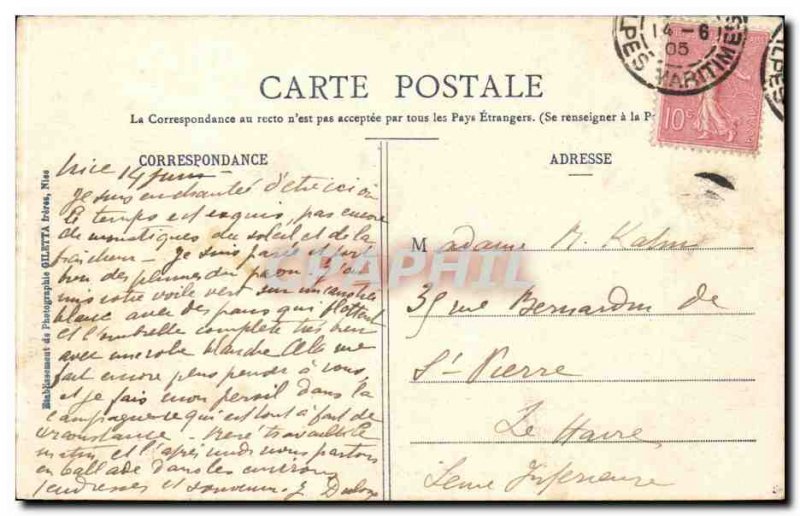 PES MARITIMES
14 - 6
05
10c
CARTE POSTALE
La Correspondance au recto n'est pas acceptée par tous les Pays Étrangers. (Se renseigner à la P
CORRESPONDANCE
ADRESSE
Etablissement de Photographie GILETTA frères, Nice
Nice 14 juin
Je suis enchantée d'être ici où
le temps est exquis, pas encore
de moustiques du soleil et de la
fraîcheur - Je suis partie
bien des plumes j'ai
mis votre voile vert sur un canotier
blanc avec des pans qui flottent
et l'ombrelle complète très bien
avec une robe blanche Cela me
fait encore plus penser à vous,
et je fais mon persil dans la
campagne ce qui est tout à fait de
circonstance - René travaille le
matin et l'après midi nous partons
en ballade dans les environs
tendresses et souvenirs J.
Madame M. Kahn
35 rue Bernardin de
St-Pierre
Le Havre
Seine Inférieure
CPAPHIL